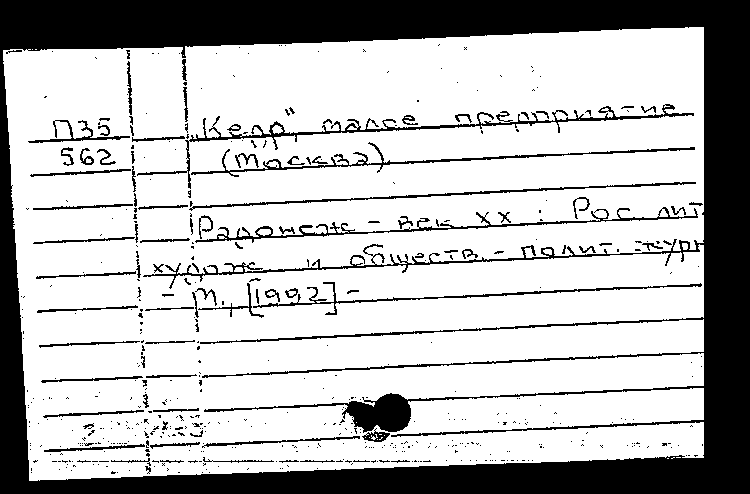 П35 „Кедр", малое предприятие
562 (Москва).
Радонеж - век XX : Рос. лит.
худож. и обществ. - полит. журн
- М., [1992] -